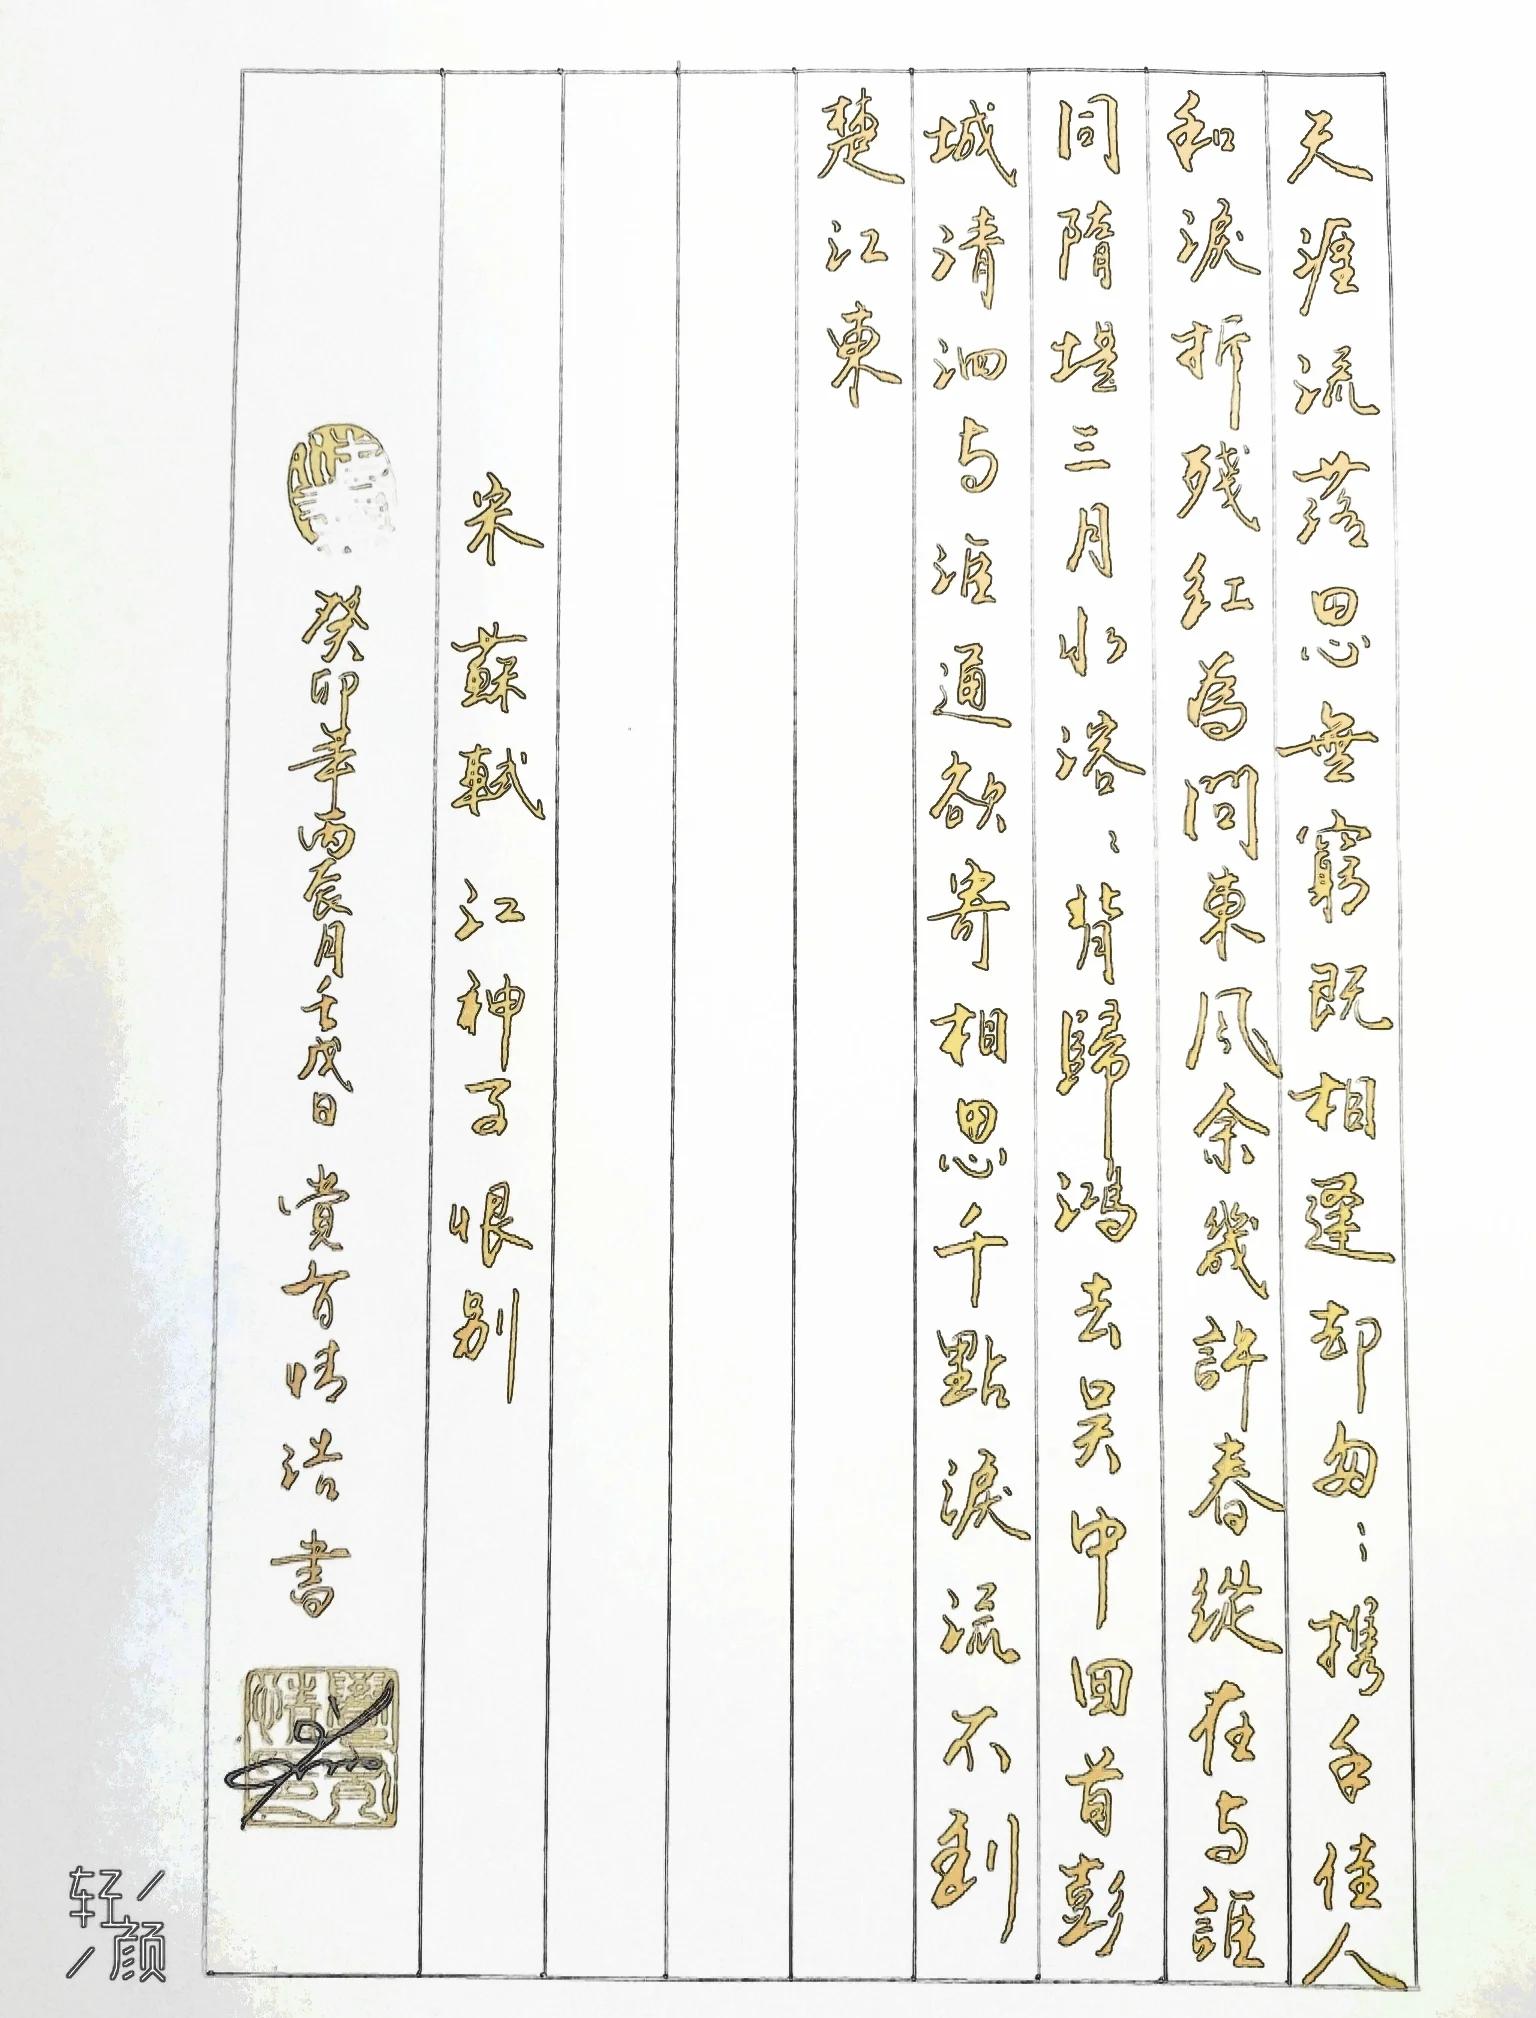 天涯流落思無窮既相逢却匆：携手佳人
和淚折殘紅為問東風余幾許春縱在与誰
同隋堤三月水溶：背歸鴻去吴中回首彭
城清泗与淮通欲寄相思千點淚流不到
楚江東
宋 蘇軾 江神子 恨别
癸卯年丙辰月壬戌日 賞有情浩書
轻颜